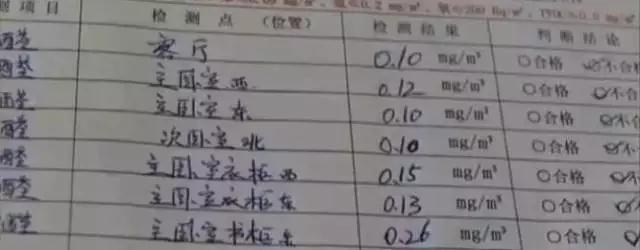 ≤0.2 mg/m³, 氨≤0.2 mg/m³, 氡≤200 Bq/m³, TVOC≤0.5 mg/m³
项目 检测点(位置) 检测结果 判断结论
客厅 0.10 mg/m³ ○合格 不合
主卧室 西 0.12 mg/m³ ○合格 不合
主卧室 东 0.10 mg/m³ ○合格 不
次卧室 北 0.10 mg/m³ ○合格 不
主卧室衣柜 西 0.15 mg/m³ ○合格 不
主卧室衣柜 东 0.13 mg/m³ ○合格 不
主卧室书柜 东 0.26 mg/m³ ○合格 不